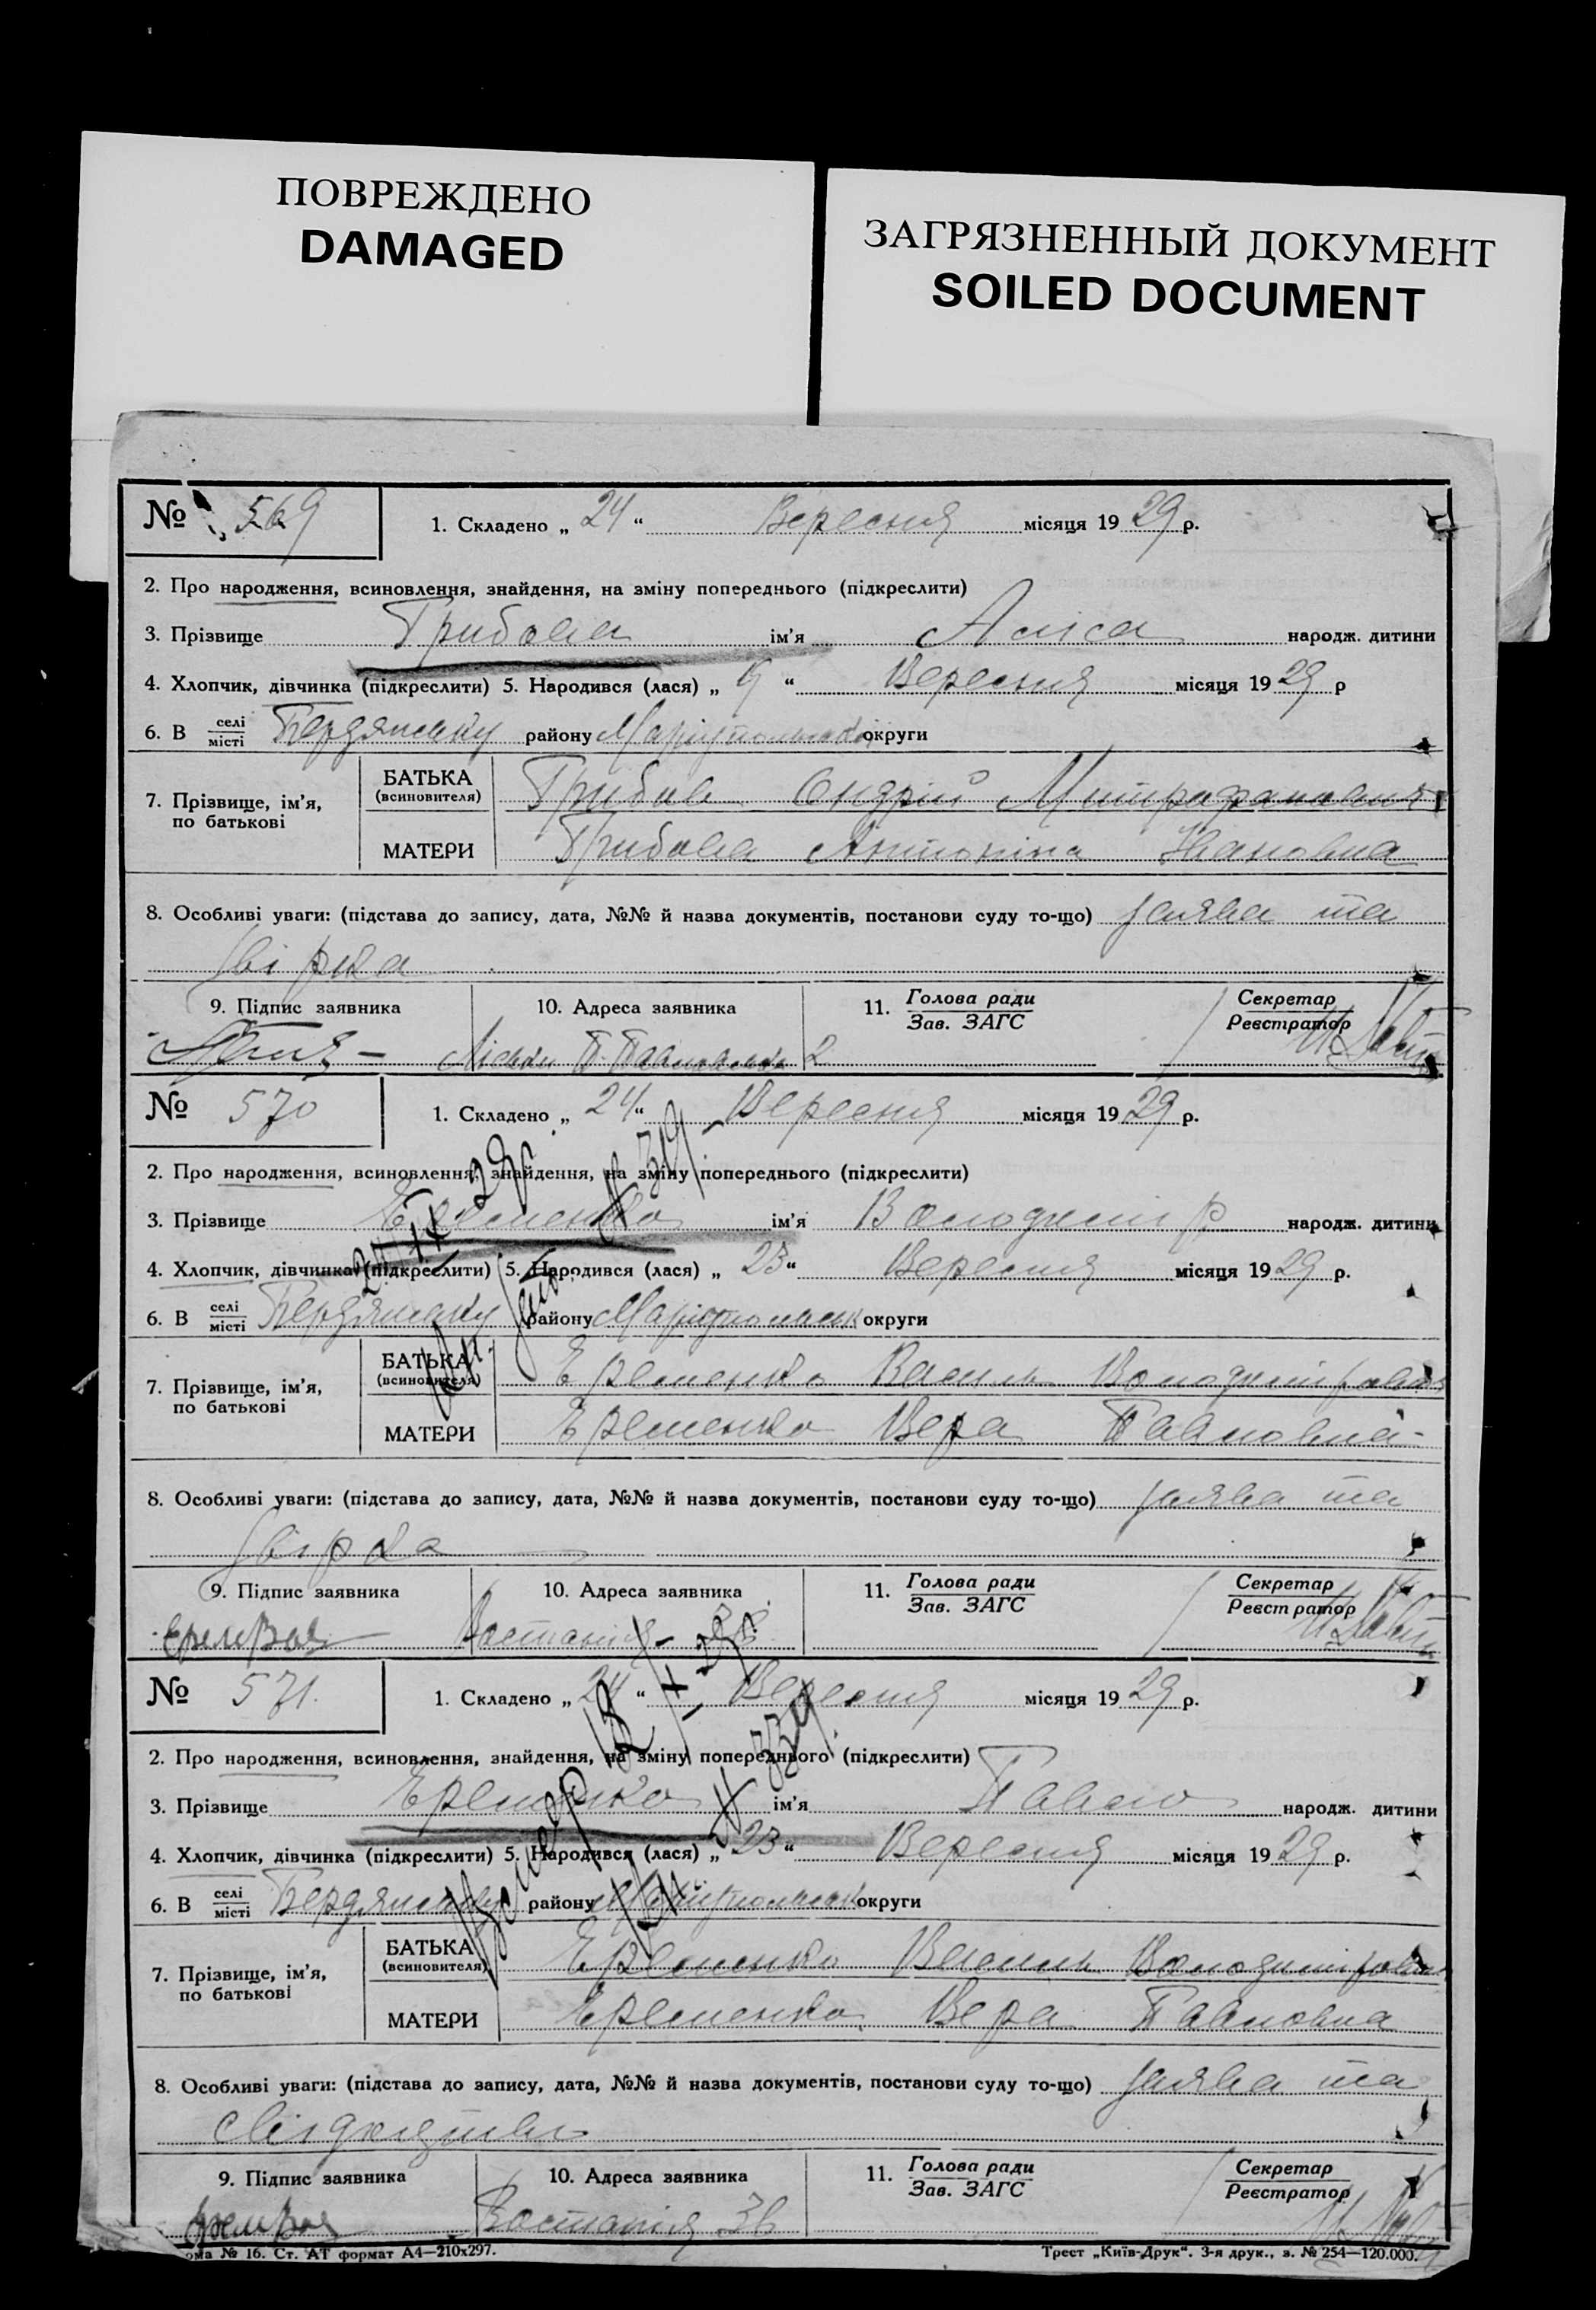 ПОВРЕЖДЕНО
DAMAGED
ЗАГРЯЗНЕННЫЙ ДОКУМЕНТ
SOILED DOCUMENT
№ 569 1. Складено „ 24 “ Вересня місяця 19 29 р.
2. Про народження, всиновлення, знайдення, на зміну попереднього (підкреслити)
3. Прізвище Грибова ім'я Аліса народж. дитини
4. Хлопчик, дівчинка (підкреслити) 5. Народився (лася) „ “ Вересня місяця 19 29 р
6. В селі місті Бердянську району округи
7. Прізвище, ім'я, по батькові
БАТЬКА (всиновителя) Грибов Андрій Митрафанович
МАТЕРИ Грибова Антоніна Івановна
8. Особливі уваги: (підстава до запису, дата, №№ й назва документів, постанови суду то-що) заява та
звірка
9. Підпис заявника 10. Адреса заявника 11. Голова ради Зав. ЗАГС Секретар Реєстратор
Лієвки 2
№ 570 1. Складено „ 24 “ Вересня місяця 19 29 р.
2. Про народження, всиновлення, знайдення, на зміну попереднього (підкреслити)
3. Прізвище Еременко ім'я Володимір народж. дитини
4. Хлопчик, дівчинка (підкреслити) 5. Народився (лася) „ 23 “ Вересня місяця 19 29 р.
6. В селі місті Бердянську району Маріупольськ округи
7. Прізвище, ім'я, по батькові
БАТЬКА (всиновителя) Еременко Василь Володимірович
МАТЕРИ Еременко Вера Павловна
8. Особливі уваги: (підстава до запису, дата, №№ й назва документів, постанови суду то-що) заява та
звірка
9. Підпис заявника 10. Адреса заявника 11. Голова ради Зав. ЗАГС Секретар Реєстратор
Востания
№ 571. 1. Складено „ 24 “ Вересня місяця 19 29 р.
2. Про народження, всиновлення, знайдення, на зміну попереднього (підкреслити)
3. Прізвище Еременко ім'я Павло народж. дитини
4. Хлопчик, дівчинка (підкреслити) 5. Народився (лася) „ 23 “ Вересня місяця 19 29 р.
6. В селі місті Бердянську району Маріупольськ округи
7. Прізвище, ім'я, по батькові
БАТЬКА (всиновителя) Еременко Василь Володимірович
МАТЕРИ Еременко Вера Павловна
8. Особливі уваги: (підстава до запису, дата, №№ й назва документів, постанови суду то-що) заява та
свідоцтво
9. Підпис заявника 10. Адреса заявника 11. Голова ради Зав. ЗАГС Секретар Реєстратор
Востания 36
ома № 16. Ст. АТ формат А4—210х297. Трест „Київ-Друк“. 3-я друк., з. № 254—120.000.